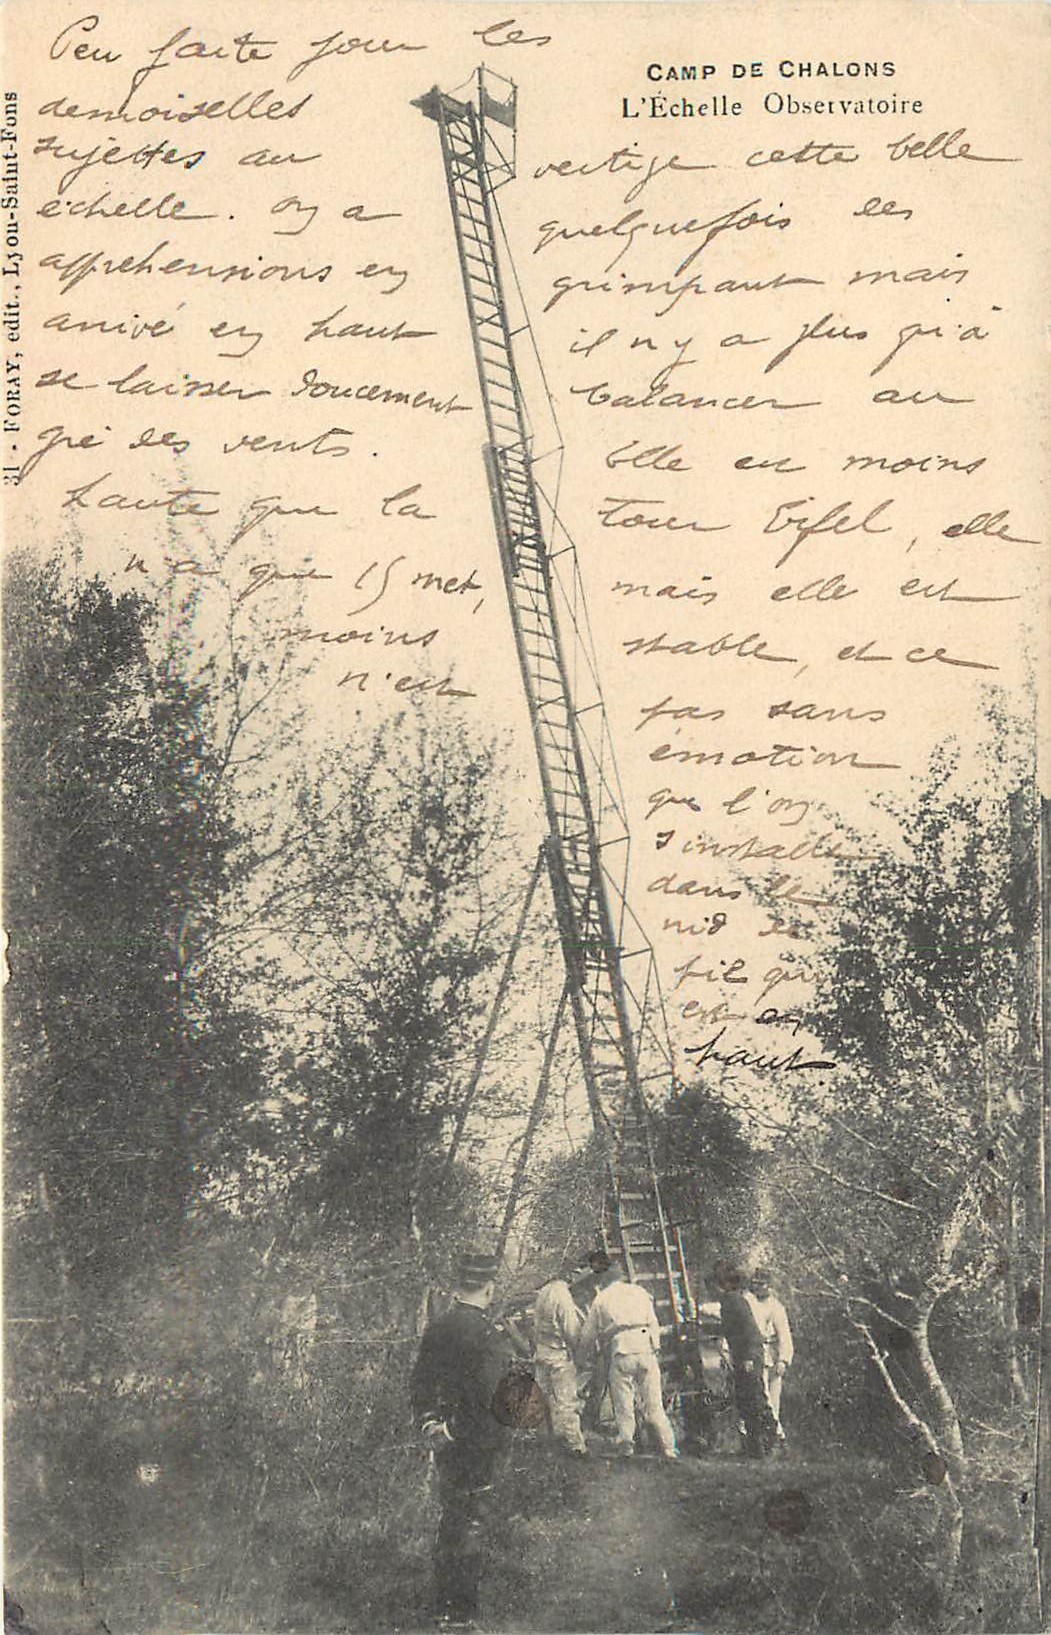 CAMP DE CHALONS
L'Échelle Observatoire
31 - FORAY, edit., Lyon-Saint-Fons
Peu faite pour les
demoiselles
sujettes au vertige cette belle
échelle. On a quelquefois des
appréhensions en grimpant mais
arrivé en haut il n'y a plus qu'à
se laisser doucement balancer au
gré des vents. Elle est moins
haute que la tour Eifel, elle
n'a que 15 met, mais elle est
moins stable, et ce
n'est pas sans
émotion
que l'on
s'installe
dans le
nid de
pie qui
est en
haut.